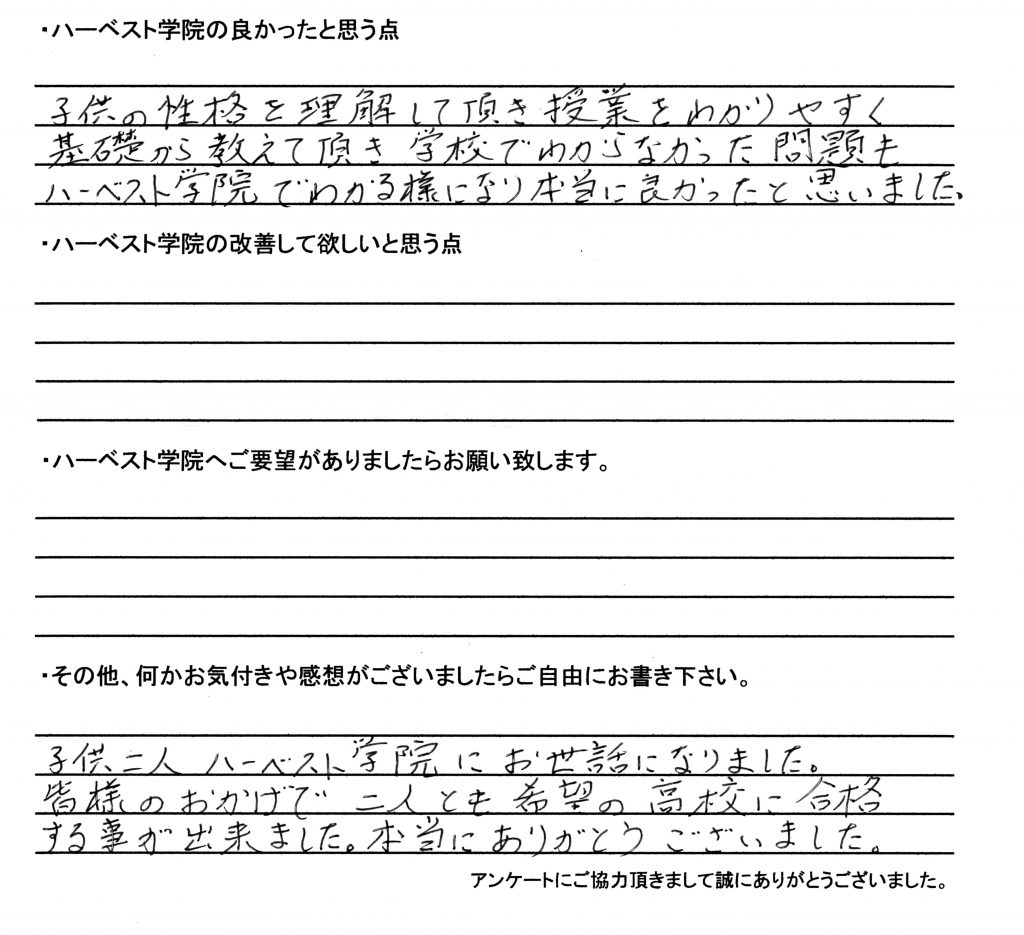 ・ハーベスト学院の良かったと思う点
子供の性格を理解して頂き授業をわかりやすく
基礎から教えて頂き 学校でわからなかった問題も
ハーベスト学院でわかる様になり本当に良かったと思いました。
・ハーベスト学院の改善して欲しいと思う点
・ハーベスト学院へご要望がありましたらお願い致します。
・その他、何かお気付きや感想がございましたらご自由にお書き下さい。
子供二人 ハーベスト学院に お世話になりました。
皆様のおかげで 二人とも希望の高校に合格
する事が出来ました。本当にありがとうございました。
アンケートにご協力頂きまして誠にありがとうございました。